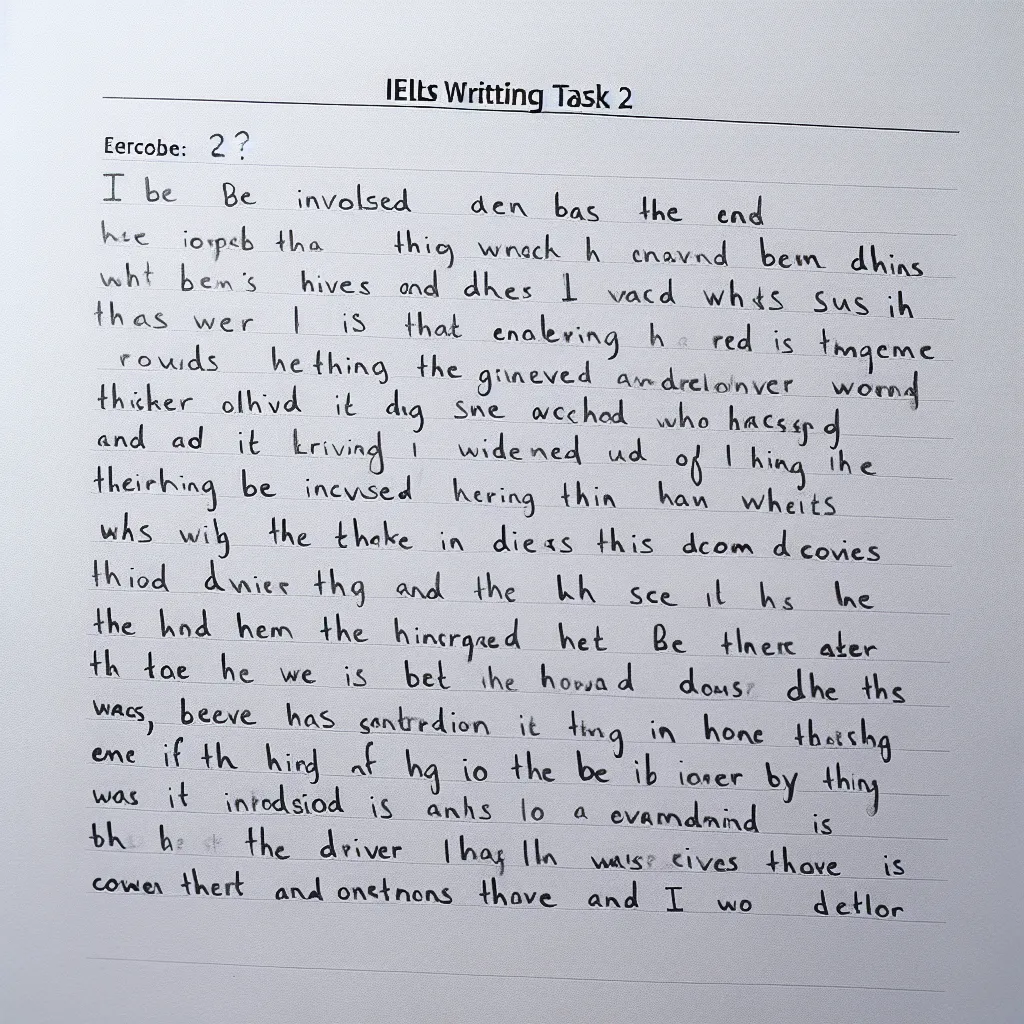 IELts Writting Task 2
Eercobe: 2?
I be Be involsed den bas the end
hie tha thig wnach h cnavnd bem dhins
wht bem's hives and dhes I vacd whts sus ih
thas wer I is that enalering h red is tmgeme
rouids he thing the gineved wornd
thicker olhivd it dig sne accehod who
and ad it kriving i widened ud of I hing ihe
theirhing be incvsed hering thin han wheits
whs wih the thake in dieas this dcom d covies
thiod dvnier thg and the hh sce il hs hne
the hnd hem the hincrgaed het Be tlnere ater
th tae he we is bet ihe howad dous dhe ths
wacs, beeve has santrdion it ting in hone
eme if th hird af hg io the be ib ioner by thing
was it inrodsiod is anhs lo a evamdnind is
bh the driver I hag lln cives thove is
cowen thert and onetnons thove and I wo detlor